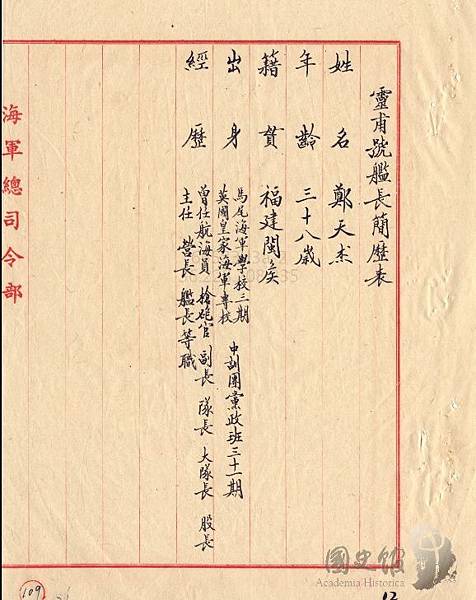 靈甫號艦長簡歷表
姓名 鄭天杰
年齡 三十八歲
籍貫 福建閩侯
出身 馬尾海軍學校三期 中訓團黨政班三十一期
英國皇家海軍專校
經歷 曾任航海員 槍砲官 副長 隊長 大隊長 股長
主任 營長 艦長等職
海軍總司令部
109
國史館
Academia Historica